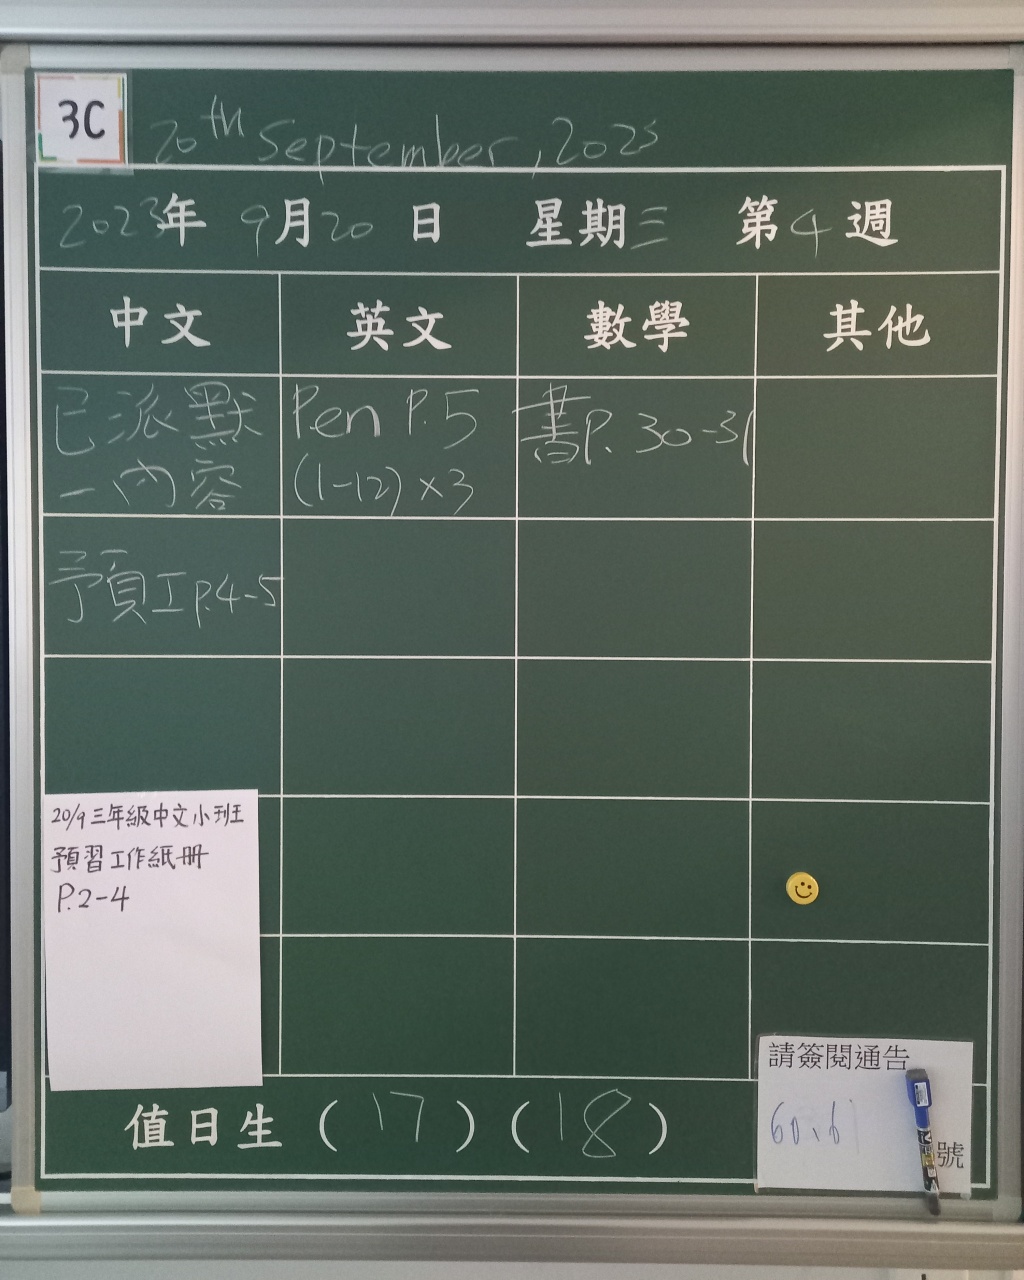 3C
20th September, 2023
2023年 9月20日 星期三 第4週
中文 英文 數學 其他
已派默 Pen P.5 書P. 30-31
一內容 (1-12) x3
預工p.4-5
20/9 三年級中文小班
預習工作紙冊
P.2-4
請簽閱通告
60、61
號
值日生 (17) (18)